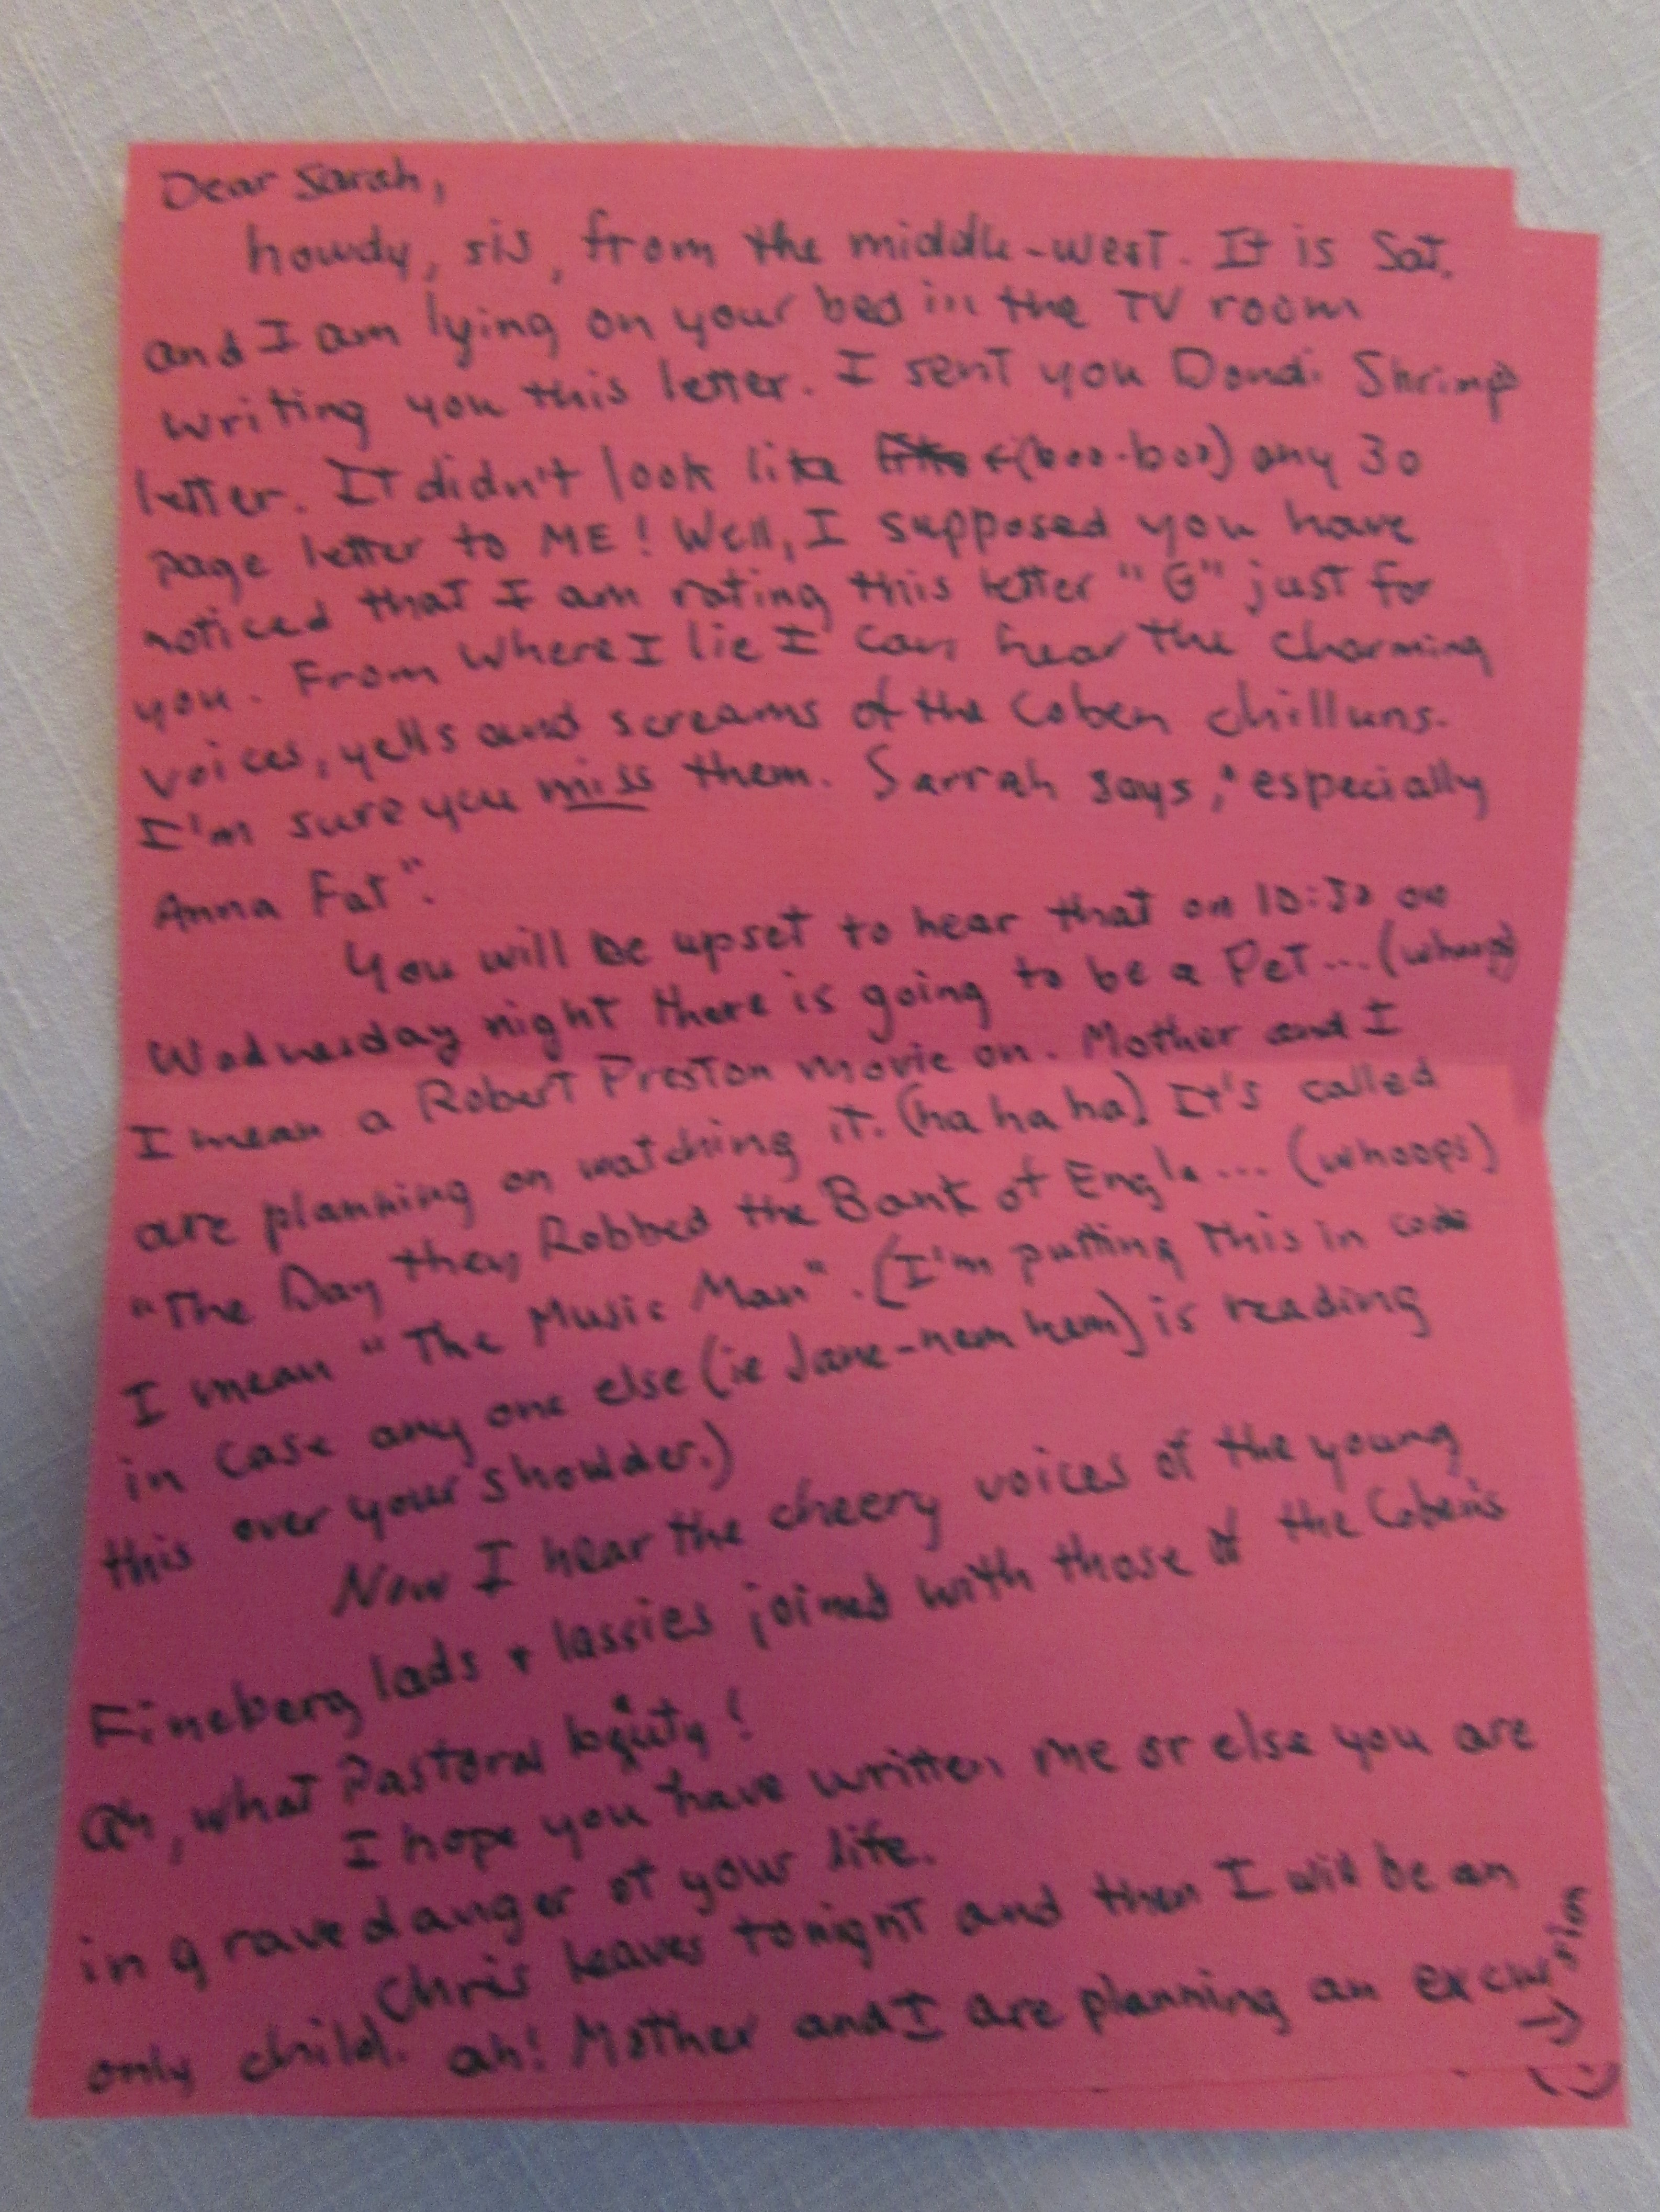 Dear Sarah,
howdy, sis, from the middle-west. It is Sat.
and I am lying on your bed in the TV room
writing you this letter. I sent you Dondi Shrimp
letter. It didn't look like (boo-boo) any 30
page letter to ME! Well, I supposed you have
noticed that I am rating this letter "G" just for
you. From where I lie I can hear the charming
voices, yells and screams of the Coben chilluns.
I'm sure you miss them. Sarrah says, "especially
Anna Fat".
You will be upset to hear that on 10:30 on
Wednesday night there is going to be a Pet... (whoops)
I mean a Robert Preston movie on. Mother and I
are planning on watching it. (ha ha ha) It's called
"The Day they Robbed the Bank of Engla... (whoops)
I mean "The Music Man". (I'm putting this in code
in case any one else (ie Jane-hem hem) is reading
this over your shoulder.)
Now I hear the cheery voices of the young
Fineberg lads + lassies joined with those of the Coben's
Ah, what Pastoral
I hope you have written me or else you are
in grave danger of your life.
Chris leaves tonight and then I will be an
only child. ah! Mother and I are planning an excursion
→